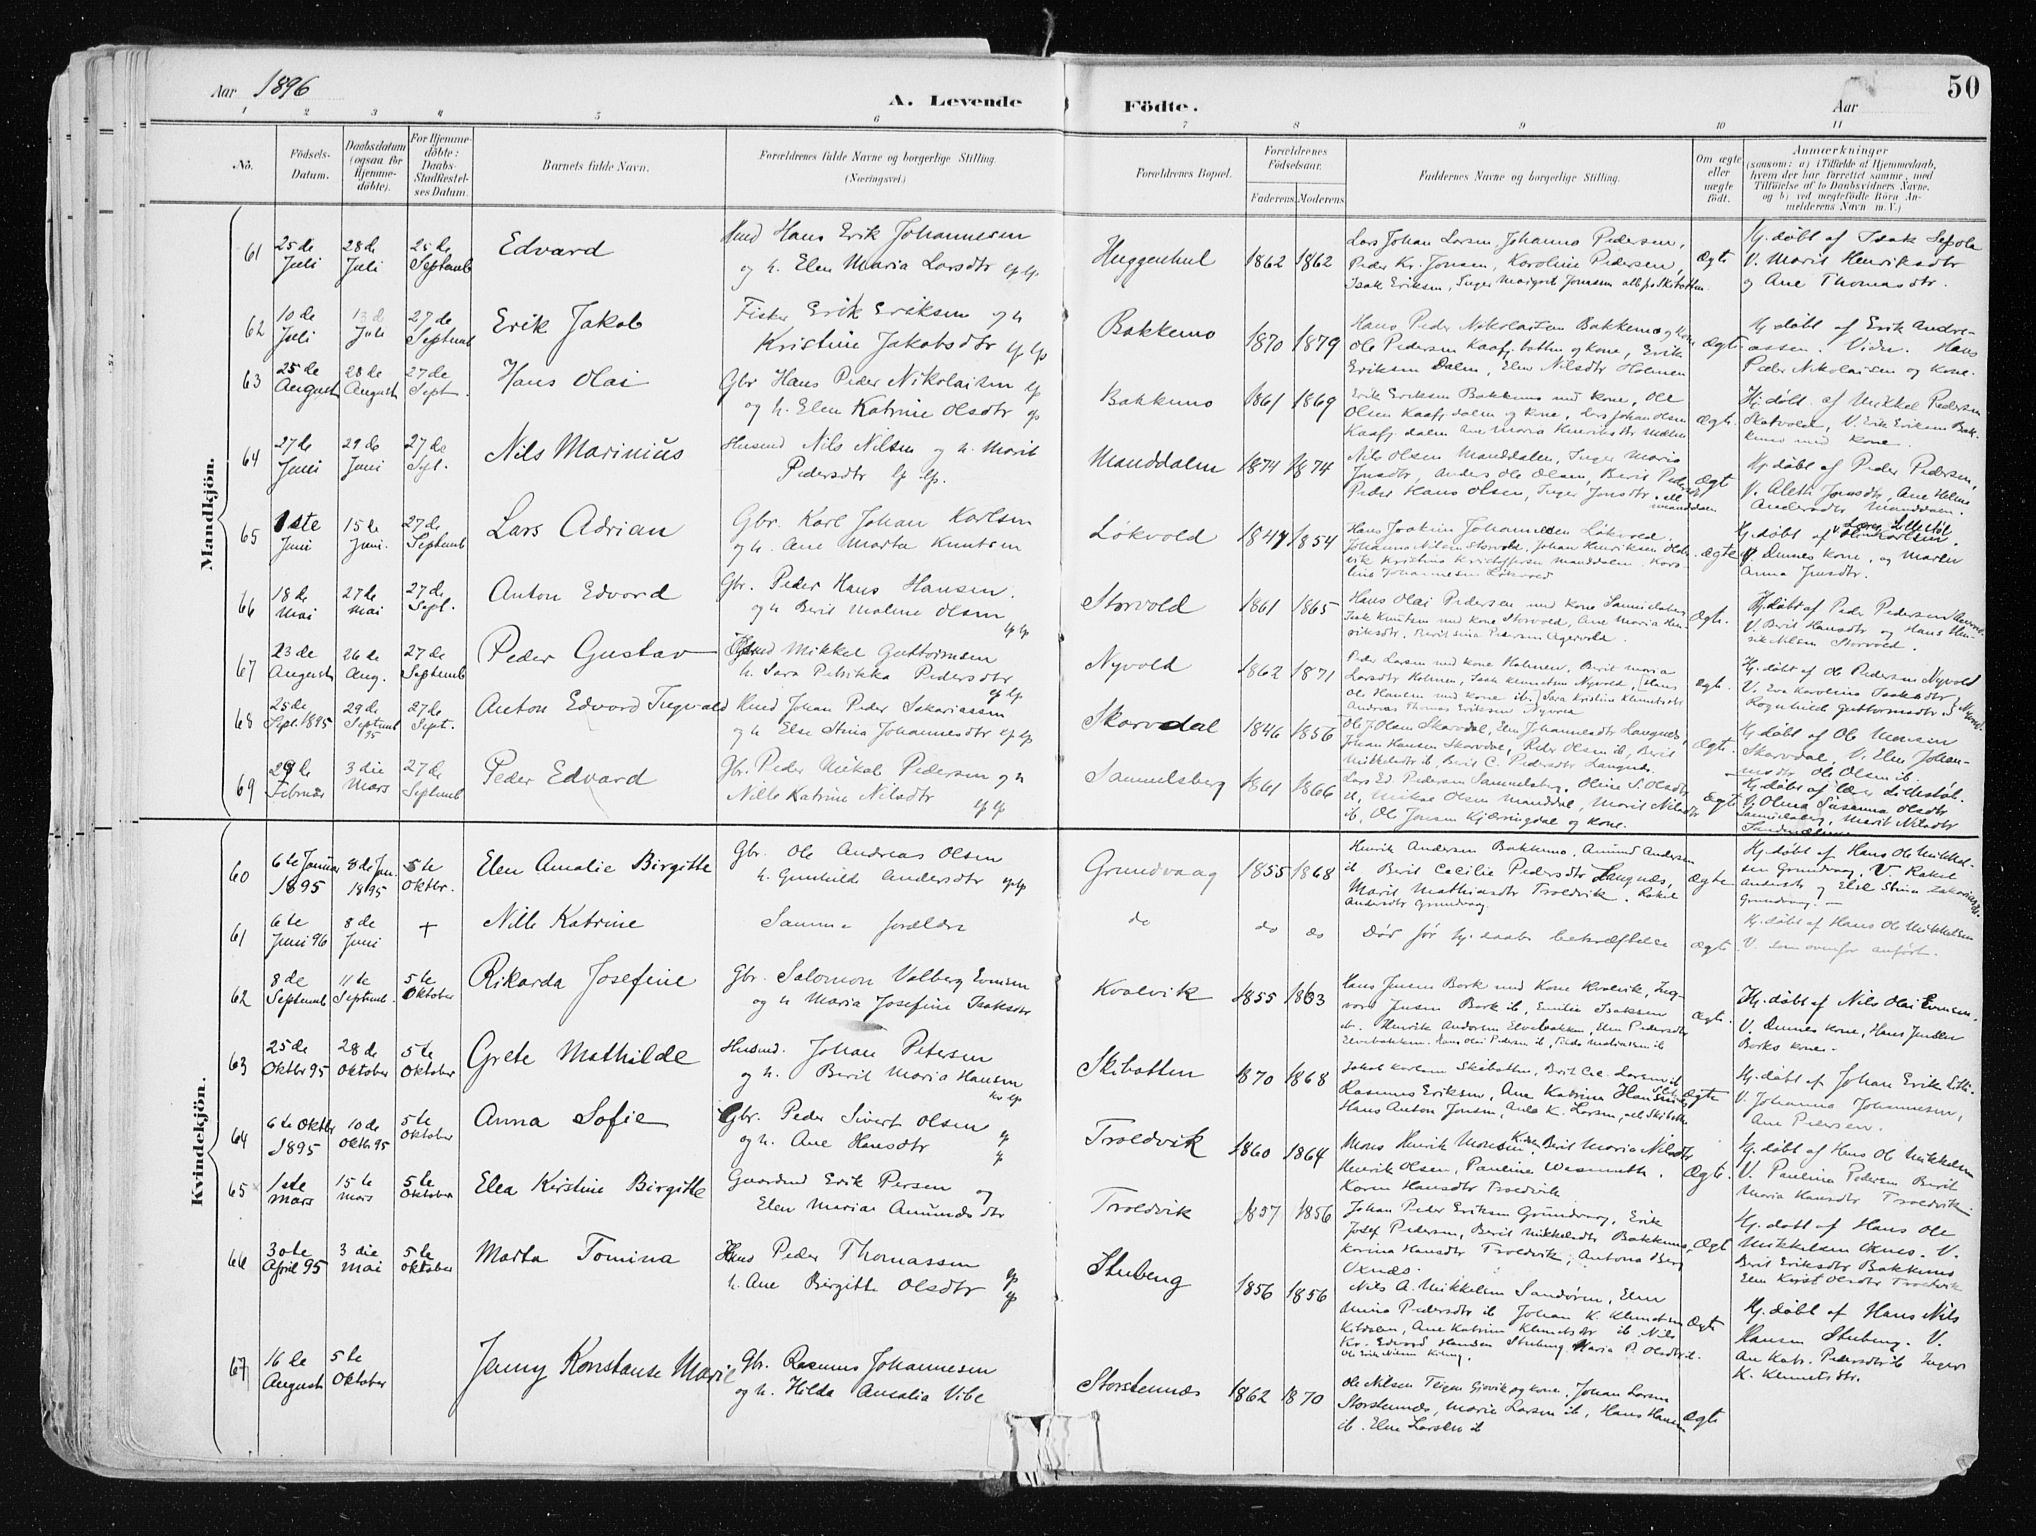 Aar 1896
A. Levende Födte.
Aar
50
1 2 3 4 5 6 7 8 9 10 11
No.
Födsels-Datum.
Daabsdatum (ogsaa for Hjemme-döbte).
For Hjemme-döbte: Daabs-Stadfæstel-ses Datum.
Barnets fulde Navn.
Forældrenes fulde Navne og borgerlige Stilling. (Næringsvei.)
Forældrenes Bopæl.
Forældrenes Födselsaar.
Faderens Moderens
Faddernes Navne og borgerlige Stilling.
Om ægte eller uægte födt.
Anmærkninger
(saasom: a) i Tilfælde af Hjemmedaab, hvem der har forrettet samme, med Tilföielse af to Daabsvidners Navne, og b) ved uægtefödte Börn An-melderens Navn m. V.)
Mandkjön.
61 25 de Juli 28 de Juli 25 de Septemb Edvard
Hans Erik Johannesen og h. Elen Maria Larsdtr
Huggenhul 1862 1862
Lars Johan Larsen, Johanna Pedersen,
Peder Kr. Jonsen, Karoline Pedersen,
Isak Eriksen, Inger Margret Jonsen alle fra Skibotten
ægte
Hj. døbt af Isak
V. Marit Henriksdtr
og Ane Thomasdtr.
62 10 de Juli 13 de Juli 27 de Septemb Erik Jakob
Fisker Erik Eriksen og h
Kristine Jakobsdtr
Bakkemo 1870 1879
Hans Peder Nikolaisen Bakkemo og kone
Ole Pedersen Kaafjbotten og kone, Erik
Eriksen Dalen, Elen Nilsdtr Holmen
ægte
Hj døbt af Erik Andre-
assen. Vidn. Hans
Peder Nikolaisen og kone.
63 25 de August 28 de August 27 de Sept. Hans Olai
Gbr Hans Peder Nikolaisen
og h. Elen Katrine Olsdtr
Bakkemo 1861 1869
Erik Eriksen Bakkemo med kone, Ole
Olsen Kaafjdalen og kone, Lars Johan Olsen
Kaafjdalen Ane Maria Henriksdtr
ægte.
Hj. døbt af Mikkel Pedersen
Skatvold, V. Erik Eriksen Bak-
kemo med kone.
64 27 de Juni 29 de Juni 27 de Sept. Nils Marinius
Husmd Nils Nilsen og h. Marit
Pedersdtr
Manddalen 1874 1874
Nils Olsen Manddalen, Inger Maria
Jonsdtr, Anders Ole Olsen, Berit Pedersdtr
Peder Hans Olsen, Inger Jonsdtr. alle
Manddalen
ægt
Hj døbt af Peder Pedersen,
V. Aleth Jonsdtr, Ane Helene
Andersdtr Manddalen.
65 1ste Juni 15 de Juni. 27 de Septemb Lars Adrian
Gbr. Karl Johan Karlsen
og h. Ane Marta Knutsen
Løkvold 1847 1854
Hans Joakim Johannesen Løkvold.
Johanna Nilsen Storvold, Johan Henriksen Olde-
rvik Kristina Kristoffersen Manddalen, Karo-
line Johannesen Løkvold
ægte
Hj. døbt af
V Dennes kone, og Maren
Anna Jonsdtr.
66 18 de Mai 27 de Mai 27 de Sept. Anton Edvard
Gbr. Peder Hans Hansen.
og h Berit Malene Olsen
Storvold 1861 1865
Hans Olai Pedersen med kone Samuelsberg
Isak Knutsen med kone Storvold, Ane Maria Hen-
riksdtr. Beritsina Pedersen
ægte.
Hj. døbt af Peder Pedersen
V. Berit Hansdtr og Hans Hen-
rik Nilsen Storvold.
67 23 de August 26 de Aug. 27 de Septemb Peder Gustav
Mikkel Guttormsen
h. Sara Petrikka Pedersdtr
Nyvold 1862 1871
Peder Larsen med kone Holmen, Berit Maria
Larsdtr Holmen, Isak Klemetsen Nyvold, Hans
Ole Hansen med kone ib, Sara Kristine Klemetsdtr
Andreas Thomas Eriksen Nyvold
ægt.
Hj. døbt af Ole Pedersen Nyvold
V. Eva Karolina Isaksdtr
Ragnhilde Guttormsdtr
68 25 de Sept. 1895 29 de Septemb 95 27 de Sept. Anton Edvard Ingvald
Hmd Johan Peder Sakariassen
og h Else Stina Johannesdtr
Skarvdal 1846 1856
Ole J. Olsen Skardal, Elen Johannesdtr Langnes,
Johan Hansen Skardal, Peder Olsen ib, Berit
Mikkelsdtr ib, Berit C. Pedersdtr Langnes
ægt.
Hj. døbt af Ole Monsen
Skarvdal, V. Elen Johan-
nesdtr Ole Olsen ib.
69 29 de Februar 3 die Mars 27 de Septemb Peder Edvard
Gbr. Peder Mikal Pedersen og h
Nille Katrine Nilsdtr
Samuelsberg 1861 1866
Lars Ed. Pedersen Samuelsberg, Oline S. Olsdtr
ib, Mikal Olsen Manddal, Marit Nilsdtr
ib, Ole Jonsen Kjæringdal og kone.
ægte
Hj døbt af Lars Lillestøl.
V. Olina Susanna Olsdtr
Samuelsberg, Marit Nilsdtr
Kvindekjön.
60 6te Januar 1895 8 de Jan. 1895 5te Oktbr. Elen Amalie Birgitte
Gbr. Ole Andreas Olsen
h. Gunhilde Andersdtr
Grundvaag 1855 1868
Henrik Andersen Bakkemo, Amund Andersen
ib Berit Cecilie Pedersdtr Langnes,
Marit Mathiasdtr Troldvik. Rakel
Andersdtr Grundvaag.
ægte
Hj. døbt af Hans Ole Mikkel-
sen Grundvaag. V Rakel
Andersdtr og Else Stina Zakariasdtr
Grundvaag.
61 6te Juni 96 8 de Juni + Nille Katrine
Samme forældre
do do do
Dør før hj. daabs bekræftelse
ægte
Hj. døbt af Hans Ole Mikkelsen
V. som ovenfor anført.
62 8 de Septemb 11te Septemb. 5te Oktober Rikarda Josefine
Gbr. Salomon Valberg Evensen
og h Maria Josefine Isaksdtr
Kvalvik 1855 1863
Hans Jensen Bork med kone Kvalvik, Ing-
vard Jensen Bork ib, Emilie Isaksen
ib. Henrik Andersen Elvebakken, Elen Pedersdtr
Elvebakken. Hans Olai Pedersen ib,
ægte.
Hj. døbt af Nils Olai Evensen.
V. Dennes kone, Hans Jensen
Borks kone.
63 25 de Oktbr 95 28 de Oktober 5te Oktober Grete Mathilde
Husmd. Johan Petersen
og h. Berit Maria Hansen
Skibotten 1870 1868
Jakob Karlsen Skibotten, Berit Ce. Larsen ib
Rasmus Eriksen, Ane Katrina Hansen
Hans Anton Jonsen, Ane K. Larsen, alle Skibotten
ægte
Hj. døbt af Johan Erik
V. Johanna Johannesen,
Ane Pedersen.
64 6te Oktbr 1895 10 de Oktbr 95 5te Oktober Anna Sofie
Gbr. Peder Sivert Olsen
og h. Ane Hansdtr
Troldvik 1860 1864
Mons Henrik Monsen, Berit Maria Nilsdtr
Henrik Olsen, Pauline Wasmuth.
Karen Hansdtr Troldvik
ægte.
Hj. døbt af Hans Ole Mikkelsen
V. Paulina Pedersen Berit
Maria Hansdtr Troldvik
65 1ste Mars 15te Mars 5te Oktober Elea Kirstine Birgitte
Gaardmd Erik Persen og
Elen Mariae Amundsdtr
Troldvik 1857 1856
Johan Peder Eriksen Grundvaag, Erik
Josef Pedersen, Berit Mikkelsdtr Bakkemo,
Karina Hansdtr Troldvik, Antona Berg
Oxnes.
ægt
Hj. døbt af Hans Ole
Mikkelsen Oxnes. V.
Berit Eriksdtr Bakkemo
Elen Kirst Olsdtr Troldvik
66 30te April 95 3 die Mai 5te Oktober Marta Tomina
Hmd Peder Thomassen
h. Ane Birgitte Olsdtr
Stubeng 1856 1856
Nils A. Mikkelsen Sandøren, Elen
Mina Pedersdtr ib Johan K. Klemetsen
Kitdalen, Ane Katrina Klemetsdtr ib. Nils
Kr. Edvard Hansen Stubeng Maria P. Olsdtr ib.
Ole Erik Nilsen
ægte
Hj døbt af Hans Nils
Hansen Stubeng. V.
Ane Katr. Pedersdtr ib Inger
K. Klemetsdtr.
67 16 de August 5te Oktober Jenny Konstanse Marie
Gbr. Rasmus Johannesen
og h. Hilda Amalia Vibe
Storstennes 1862 1870
Ole Nilsen Teigen Gjøvik og kone. Johan Larsen
Storstennes, Marie Larsen ib, Hans Hansen
ib. Elen Larsen ib
ægte